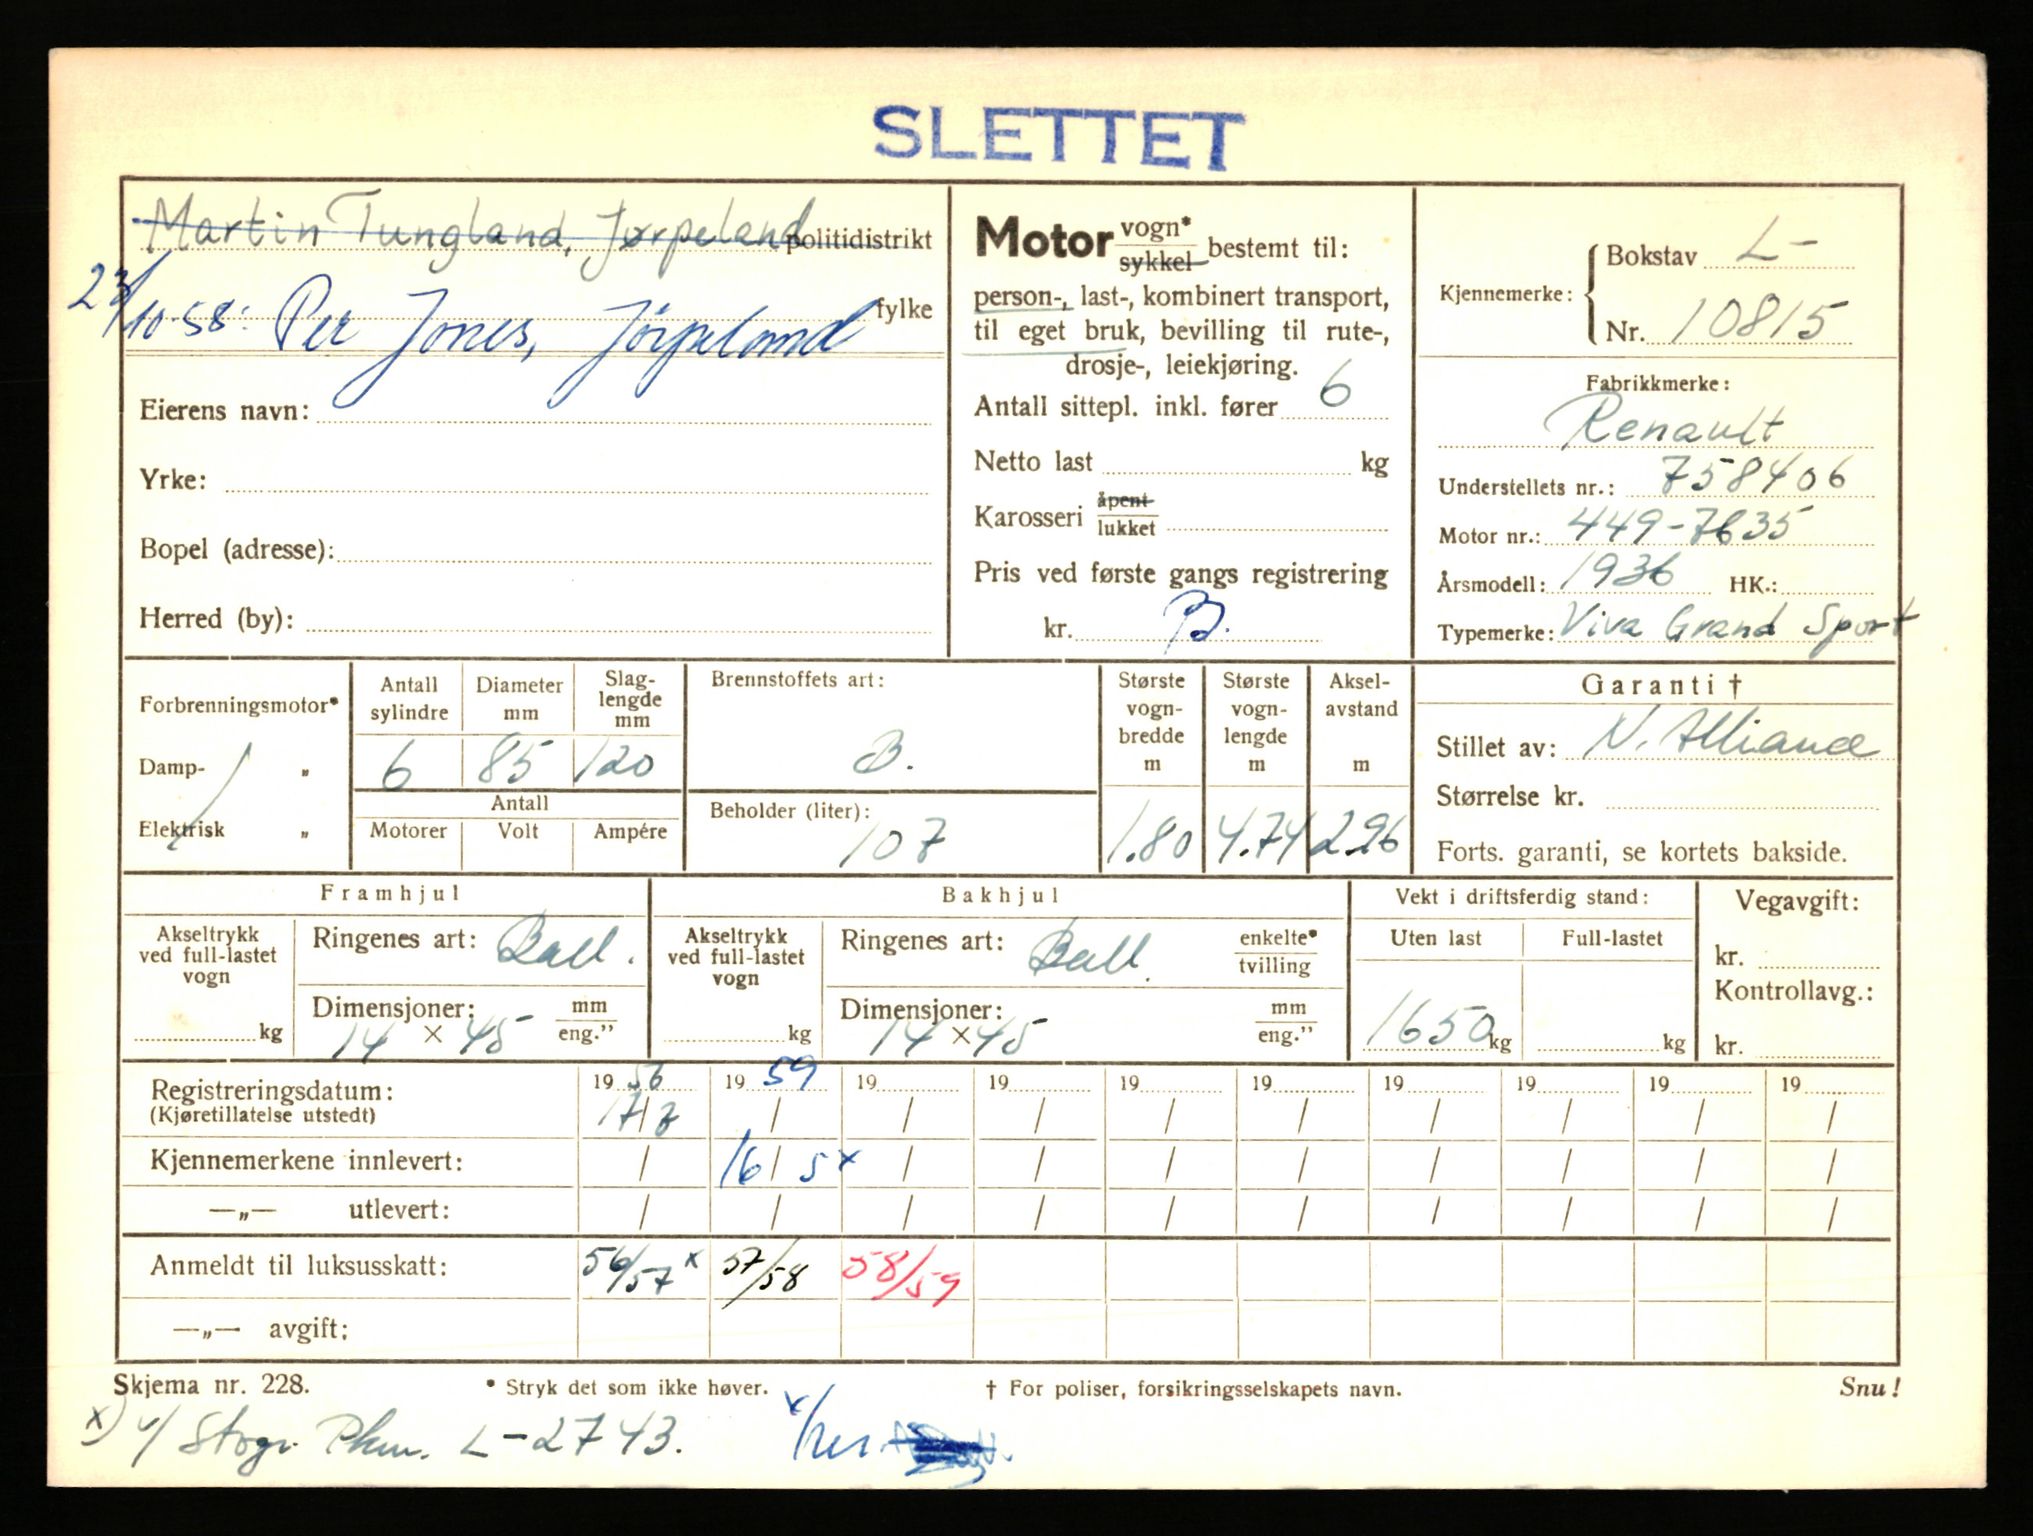 SLETTET
Martin Tungland, Jørpeland politidistrikt
23/10-58: Per Jones, Jørpeland fylke
Eierens navn:
Yrke:
Bopel (adresse):
Herred (by):
Motor vogn* sykkel bestemt til:
person-, last-, kombinert transport,
til eget bruk, bevilling til rute-,
drosje-, leiekjøring.
Antall sittepl. inkl. fører 6
Netto last kg
Karosseri åpent lukket
Pris ved første gangs registrering
kr. B.
Kjennemerke: Bokstav L-
Nr. 10815
Fabrikkmerke:
Renault
Understellets nr.: 758406
Motor nr.: 449-7635
Årsmodell: 1936 HK.:
Typemerke: Viva Grand Sport
Forbrenningsmotor*
Damp- „
Elektrisk „
Antall sylindre
Diameter mm
Slag-lengde mm
6 85 120
Antall
Motorer Volt Ampére
Brennstoffets art:
B.
Beholder (liter):
107
Største vogn-bredde m
1.80
Største vogn-lengde m
4.74
Aksel-avstand m
2.96
Garanti †
Stillet av: N. Alliance
Størrelse kr.
Forts. garanti, se kortets bakside.
Framhjul
Akseltrykk ved full-lastet vogn
kg
Ringenes art: Ball.
Dimensjoner: mm eng.”
14 × 45
Bakhjul
Akseltrykk ved full-lastet vogn
kg
Ringenes art: Ball. enkelte* tvilling
Dimensjoner: mm eng.”
14 × 45
Vekt i driftsferdig stand:
Uten last Full-lastet
1650 kg kg
Vegavgift:
kr.
Kontrollavg.:
kr.
Registreringsdatum: 19 56 19 59 19 19 19 19 19 19 19 19
(Kjøretillatelse utstedt) 17/7 / / / / / / / / /
Kjennemerkene innlevert: / 16/5 x / / / / / / / /
—„— utlevert: / / / / / / / / / /
Anmeldt til luksusskatt: 56/57 x 57/58 58/59
—„— avgift:
Skjema nr. 228. * Stryk det som ikke høver. † For poliser, forsikringsselskapets navn. Snu!
x) L-2743. x/